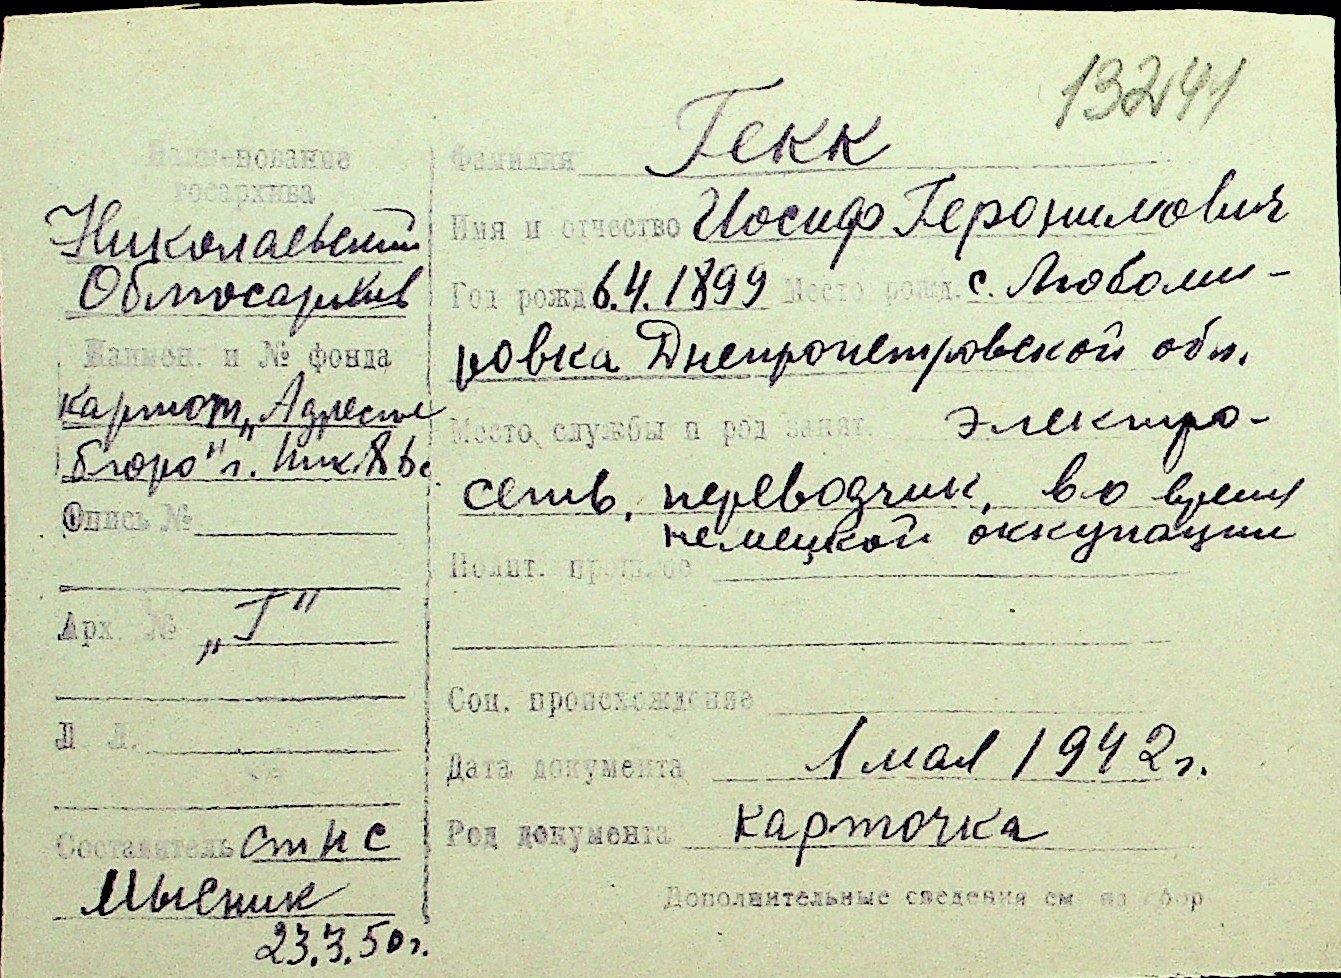 13241
Наименование
госархива
Николаевский
Облгосархив
Наимен. и № фонда
картот. „Адресное
бюро" г. Ник.
Опись №
Арх. № „Г"
Л. Л.
Составитель ст НС
Мысник
23.3.50г.
Фамилия Гекк
Имя и отчество Иосиф Геронимович
Год рожд. 6.4.1899 Место рожд. с. Любоми-
ровка Днепропетровской обл.
Место службы и род занят. электро-
сеть, переводчик, во время
немецкой оккупации
Полит. прошлое
Соц. происхождение
Дата документа 1 мая 1942г.
Род документа карточка
Дополнительные сведения см на обор